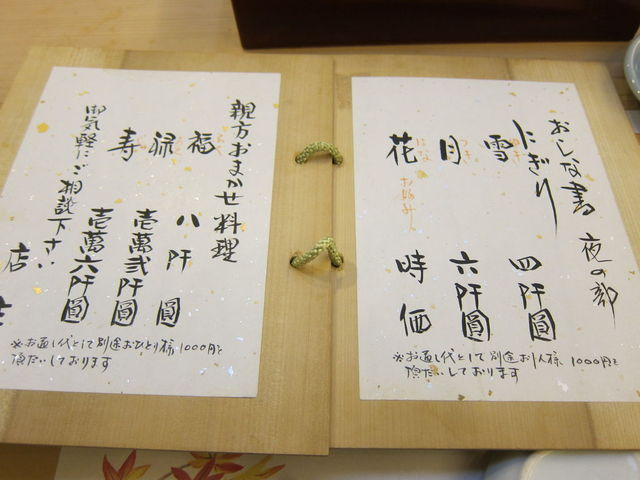 おしな書 夜の部
にぎり
雪 ゆき 四阡圓
月 つき 六阡圓
花 はな お好み 時価
※お通し代として別途お1人様 1000円を
頂だいしております
親方おまかせ料理
福 八阡圓
禄 壱萬弐阡圓
寿 壱萬六阡圓
御気軽にご相談下さい
店主
※お通し代として別途おひとり様 1000円を
頂だいしております